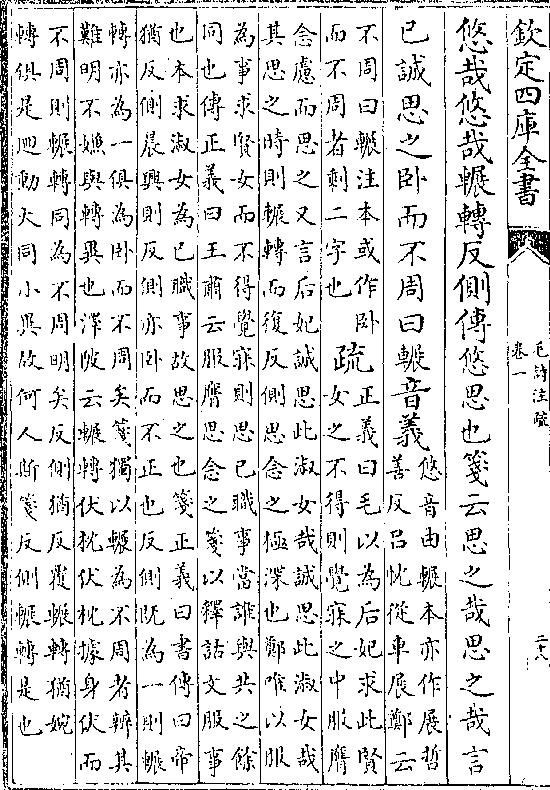 欽定四庫全書
毛詩注疏
卷一
二十八
悠哉悠哉輾轉反側傳悠思也箋云思之哉思之哉言
已誠思之卧而不周曰輾音義
悠音由輾本亦作展哲
善反吕忱從車展鄭云
不周曰輾注本或作卧
而不周者剩二字也
疏
正義曰毛以為后妃求此賢
女之不得則覺寐之中服膺
念慮而思之又言后妃誠思此淑女哉誠思此淑女哉
其思之時則輾轉而復反側思念之極深也鄭唯以服
為事求賢女而不得覺寐則思已職事當誰與共之餘
同也傳正義曰王肅云服膺思念之箋以釋詁文服事
也本求淑女為已職事故思之也箋正義曰書傳曰帝
猶反側晨興則反側亦卧而不正也反側既為一則輾
轉亦為一俱為卧而不周矣箋獨以輾為不周者辨其
難明不嫌與轉異也澤陂云輾轉伏枕伏枕據身伏而
不周則輾轉同為不周明矣反側猶反覆輾轉猶婉
轉俱是迴動大同小異故何人斯箋反側輾轉是也